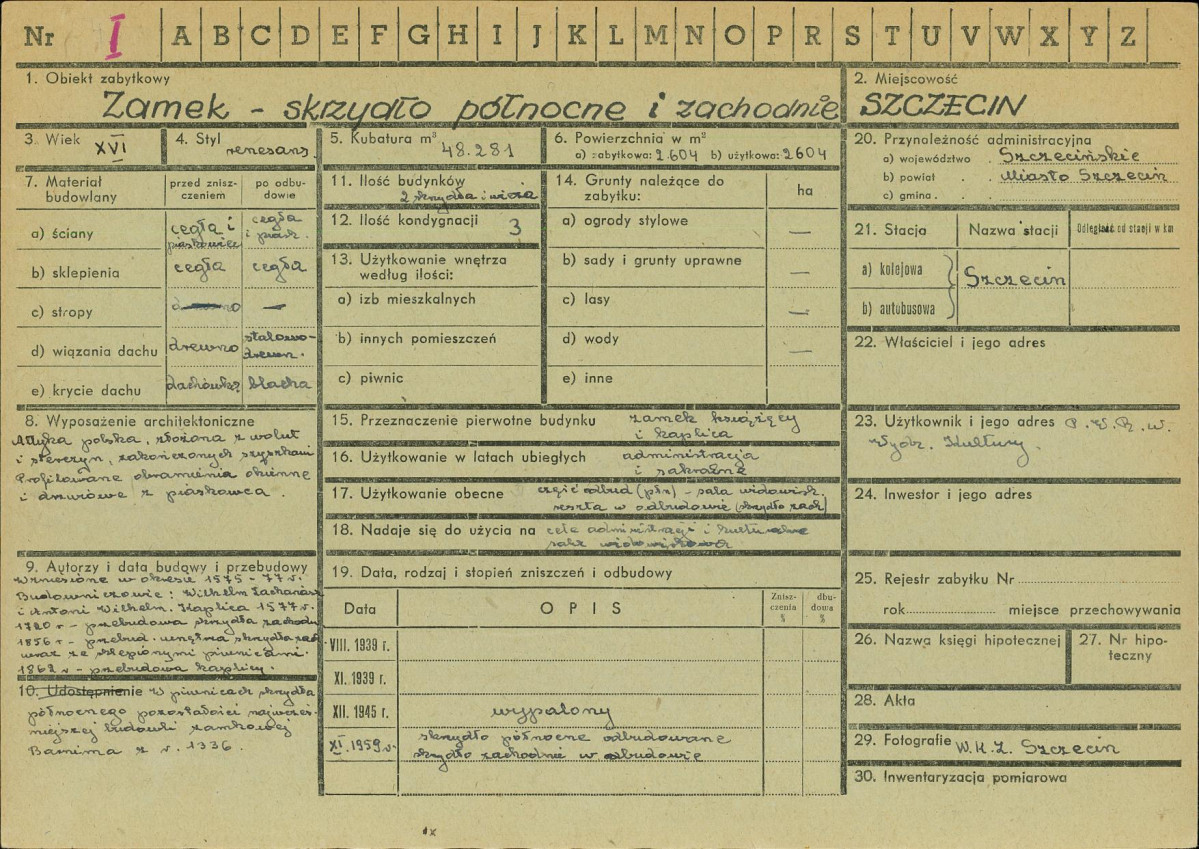 Nr I A B C D E F G H I J K L M N O P R S T U V W X Y Z
1. Obiekt zabytkowy
Zamek - skrzydło północne i zachodnie
2. Miejscowość
SZCZECIN
3. Wiek XVI
4. Styl renesans.
5. Kubatura m³ 48.281
6. Powierzchnia w m²
a) zabytkowa: 2.604 b) użytkowa: 2604
7. Materiał budowlany
przed znisz-
czeniem
po odbu-
dowie
a) ściany cegła i piaskowiec cegła i piask.
b) sklepienia cegła cegła
c) stropy drewno —
d) wiązania dachu drewno stalowo-drewn.
e) krycie dachu dachówka blacha
8. Wyposażenie architektoniczne
Attyka polska, złożona z wolut
i sterczyn, zakończonych szyszkami
Profilowane obramienia okienne
i drzwiowe z piaskowca.
9. Autorzy i data budowy i przebudowy
Wzniesione w okresie 1575-77 r.
Budowniczowie: Wilhelm Zachariasz
i Antoni Wilhelm. Kaplica 1577 r.
1720 r - przebudowa skrzydła zachodn
1856 r - przebud. wnętrza skrzydła zach
wraz ze sklepionymi piwnicami.
1862 r - przebudowa kaplicy.
10. Udostępnienie W piwnicach skrzydła
północnego pozostałości najwcześ-
niejszej budowli zamkowej
Barnima z r. 1336.
11. Ilość budynków
2 skrzydła i wieża
12. Ilość kondygnacji 3
13. Użytkowanie wnętrza
według ilości:
a) izb mieszkalnych
b) innych pomieszczeń
c) piwnic
14. Grunty należące do
zabytku:
ha
a) ogrody stylowe —
b) sady i grunty uprawne —
c) lasy —
d) wody —
e) inne
15. Przeznaczenie pierwotne budynku zamek książęcy
i kaplica
16. Użytkowanie w latach ubiegłych administracja
i sakralne
17. Użytkowanie obecne część odbud (płn) - sala widowisk.
reszta w odbudowie (skrzydło zach)
18. Nadaje się do użycia na cele administracji i kulturalne
sale widowiskowe
19. Data, rodzaj i stopień zniszczeń i odbudowy
Data
OPIS
Znisz-
czenia
%
dbu-
dowa
%
VIII. 1939 r.
XI. 1939 r.
XII. 1945 r. wypalony
XI. 1959 r. skrzydło północne odbudowane
skrzydło zachodnie w odbudowie
20. Przynależność administracyjna
a) województwo . Szczecińskie
b) powiat . . Miasto Szczecin
c) gmina . .
21. Stacja
Nazwa stacji
Odległość od stacji w km
a) kolejowa
Szczecin
b) autobusowa
22. Właściciel i jego adres
23. Użytkownik i jego adres P.W.R.W.
Wydz. Kultury.
24. Inwestor i jego adres
25. Rejestr zabytku Nr
rok miejsce przechowywania
26. Nazwa księgi hipotecznej
27. Nr hipo-
teczny
28. Akta
29. Fotografie W.K.Z. Szczecin
30. Inwentaryzacja pomiarowa